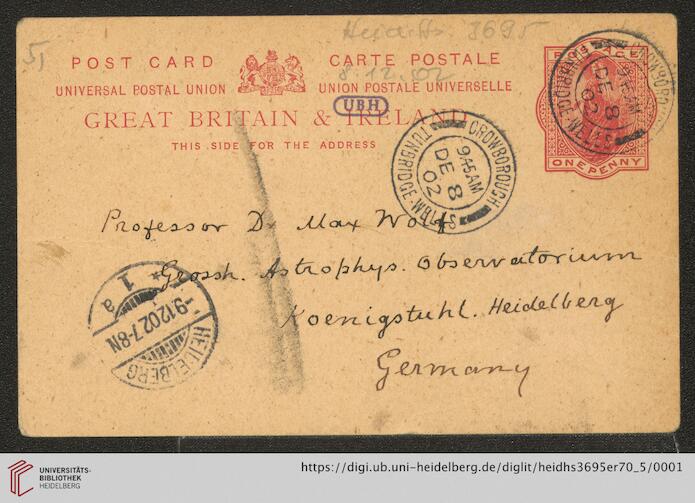 Heidelb. Hs. 3695
5,
POST CARD CARTE POSTALE
8.12.1902
UNIVERSAL POSTAL UNION UNION POSTALE UNIVERSELLE
UBH
GREAT BRITAIN & IRELAND
THIS SIDE FOR THE ADDRESS
POSTAGE
ONE PENNY
CROWBOROUGH
9 45 AM
DE 8
02
TUNBRIDGE-WELLS
CROWBOROUGH
9 45 AM
DE 8
02
TUNBRIDGE-WELLS
Professor Dr Max Wolf
Grossh. Astrophys. Observatorium
Koenigstuhl. Heidelberg
Germany
* 1 a
-9.12.02.7-8N
HEIDELBERG
UNIVERSITÄTS-
BIBLIOTHEK
HEIDELBERG
https://digi.ub.uni-heidelberg.de/diglit/heidhs3695er70_5/0001